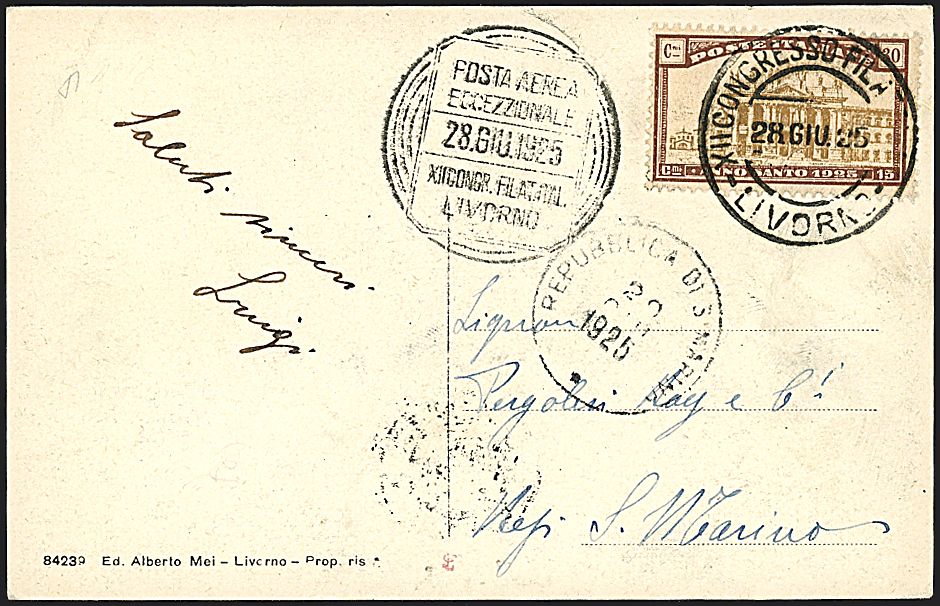 POSTA AEREA
ECCEZZIONALE
28.GIU.1925
XII CONGR. FILAT. ITAL.
LIVORNO
Cmi POSTE 30
Cmi ANNO SANTO 1925 15
XII CONGRESSO FILA
28.GIU.25
LIVORNO
Saluti sinceri
Luigi
REPUBBLICA DI S. MARINO
1925
Pergolesi
e Ci
Rep. S. Marino
84239 Ed. Alberto Mei – Livorno – Prop. ris